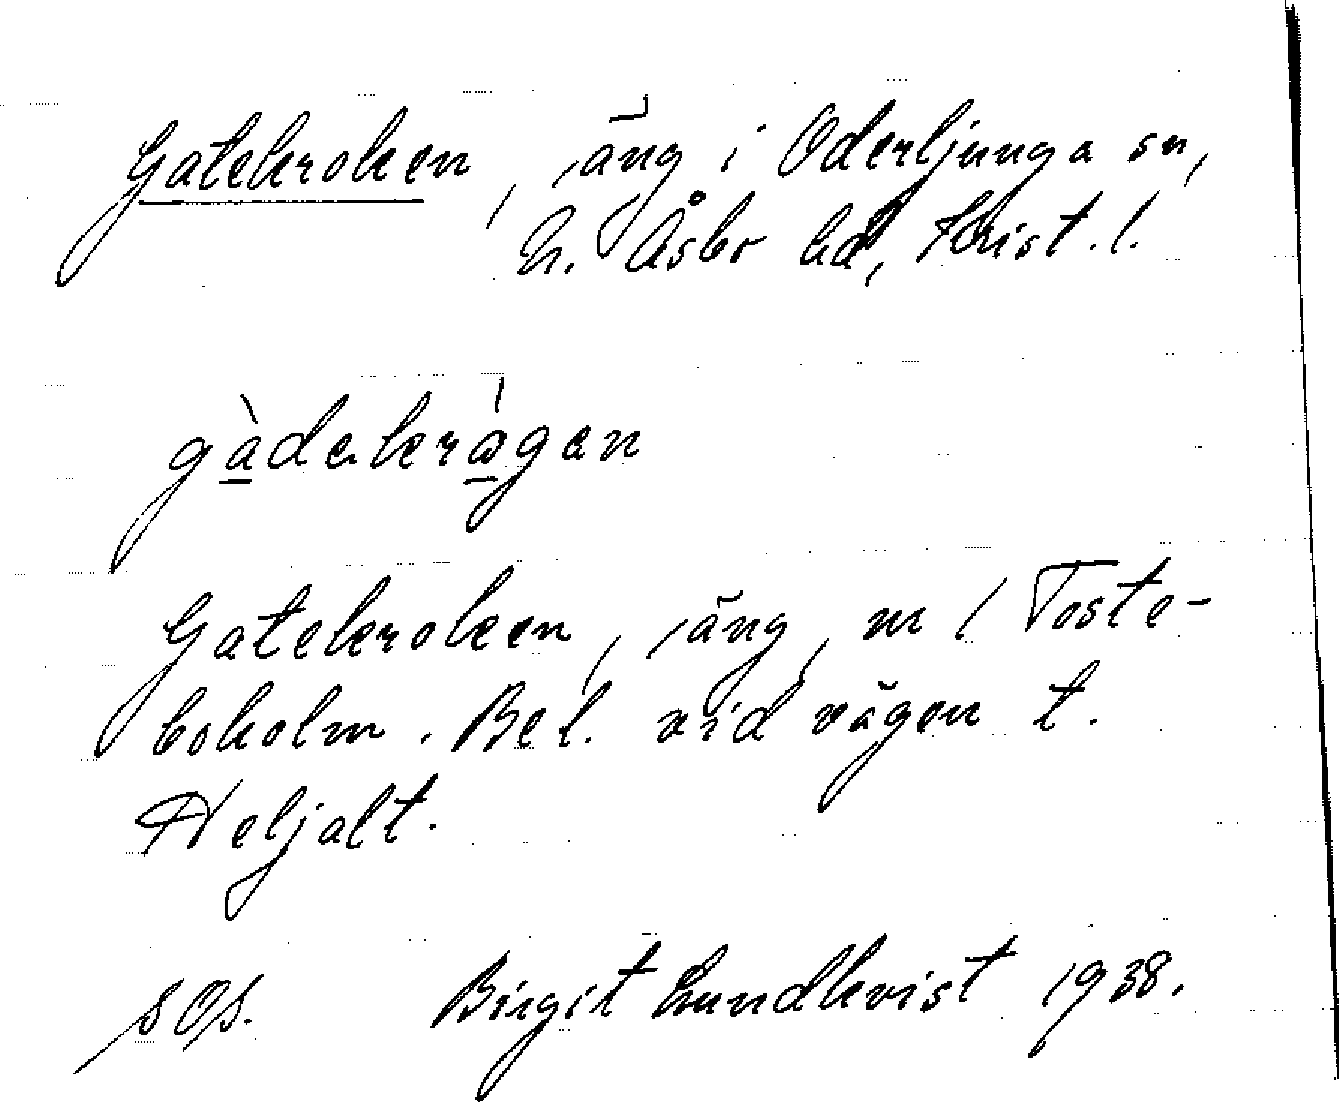 Gatekroken, äng i Oderljunga sn,
N. Åsbo hd, Krist. l.
gàdəkrågən
Gatekroken, äng, m / Toste-
boholm. Bel. vid vägen t.
Heljalt.
SOS. Birgit Lundkvist 1938.